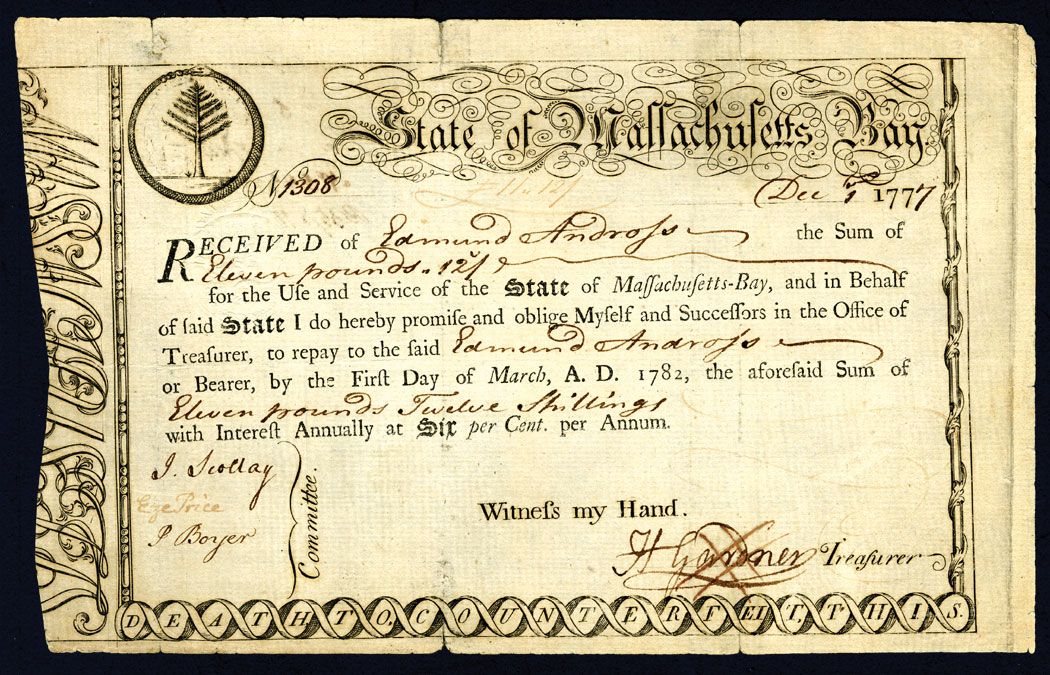 State of Maſſachuſetts Bay.
No 1308
Dec 1 1777
RECEIVED of Edmund Androſs the Sum of
Eleven pounds. 12/
for the Uſe and Service of the State of Maſſachuſetts-Bay, and in Behalf
of ſaid State I do hereby promiſe and oblige Myſelf and Succeſſors in the Office of
Treaſurer, to repay to the ſaid Edmund Androſs
or Bearer, by the Firſt Day of March, A. D. 1782, the aforeſaid Sum of
Eleven pounds Twelve Shillings
with Intereſt Annually at Six per Cent. per Annum.
J. Scollay
Eze Price
P Boyer
Committee.
Witneſs my Hand.
H Gardner Treaſurer
DEATH TO COUNTERFEIT THIS.